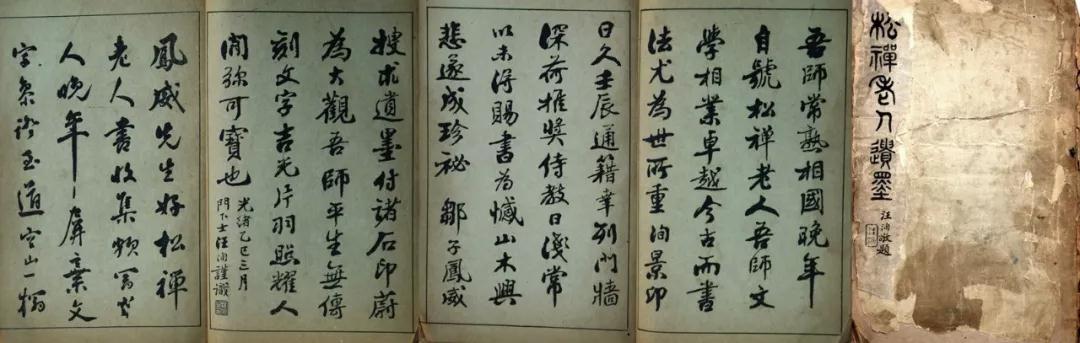 松禪老人遺墨
汪洵敬題
吾師常熟相國晚年
自號松禪老人吾師文
學相業卓越今古而書
法尤為世所重洵景印
日久壬辰通籍幸列門牆
深荷推獎侍教日淺常
以未得賜書為憾山木興
悲遂成珍祕 鄒子鳳威
搜求遺墨付諸石印蔚
為大觀吾師平生無傳
刻文字吉光片羽照耀人
間弥可寶也
光緒乙巳三月
門下士汪洵謹識
鳳威先生好松禪
老人書收集頗富
人晚年屏棄文
字參諸至道空山一